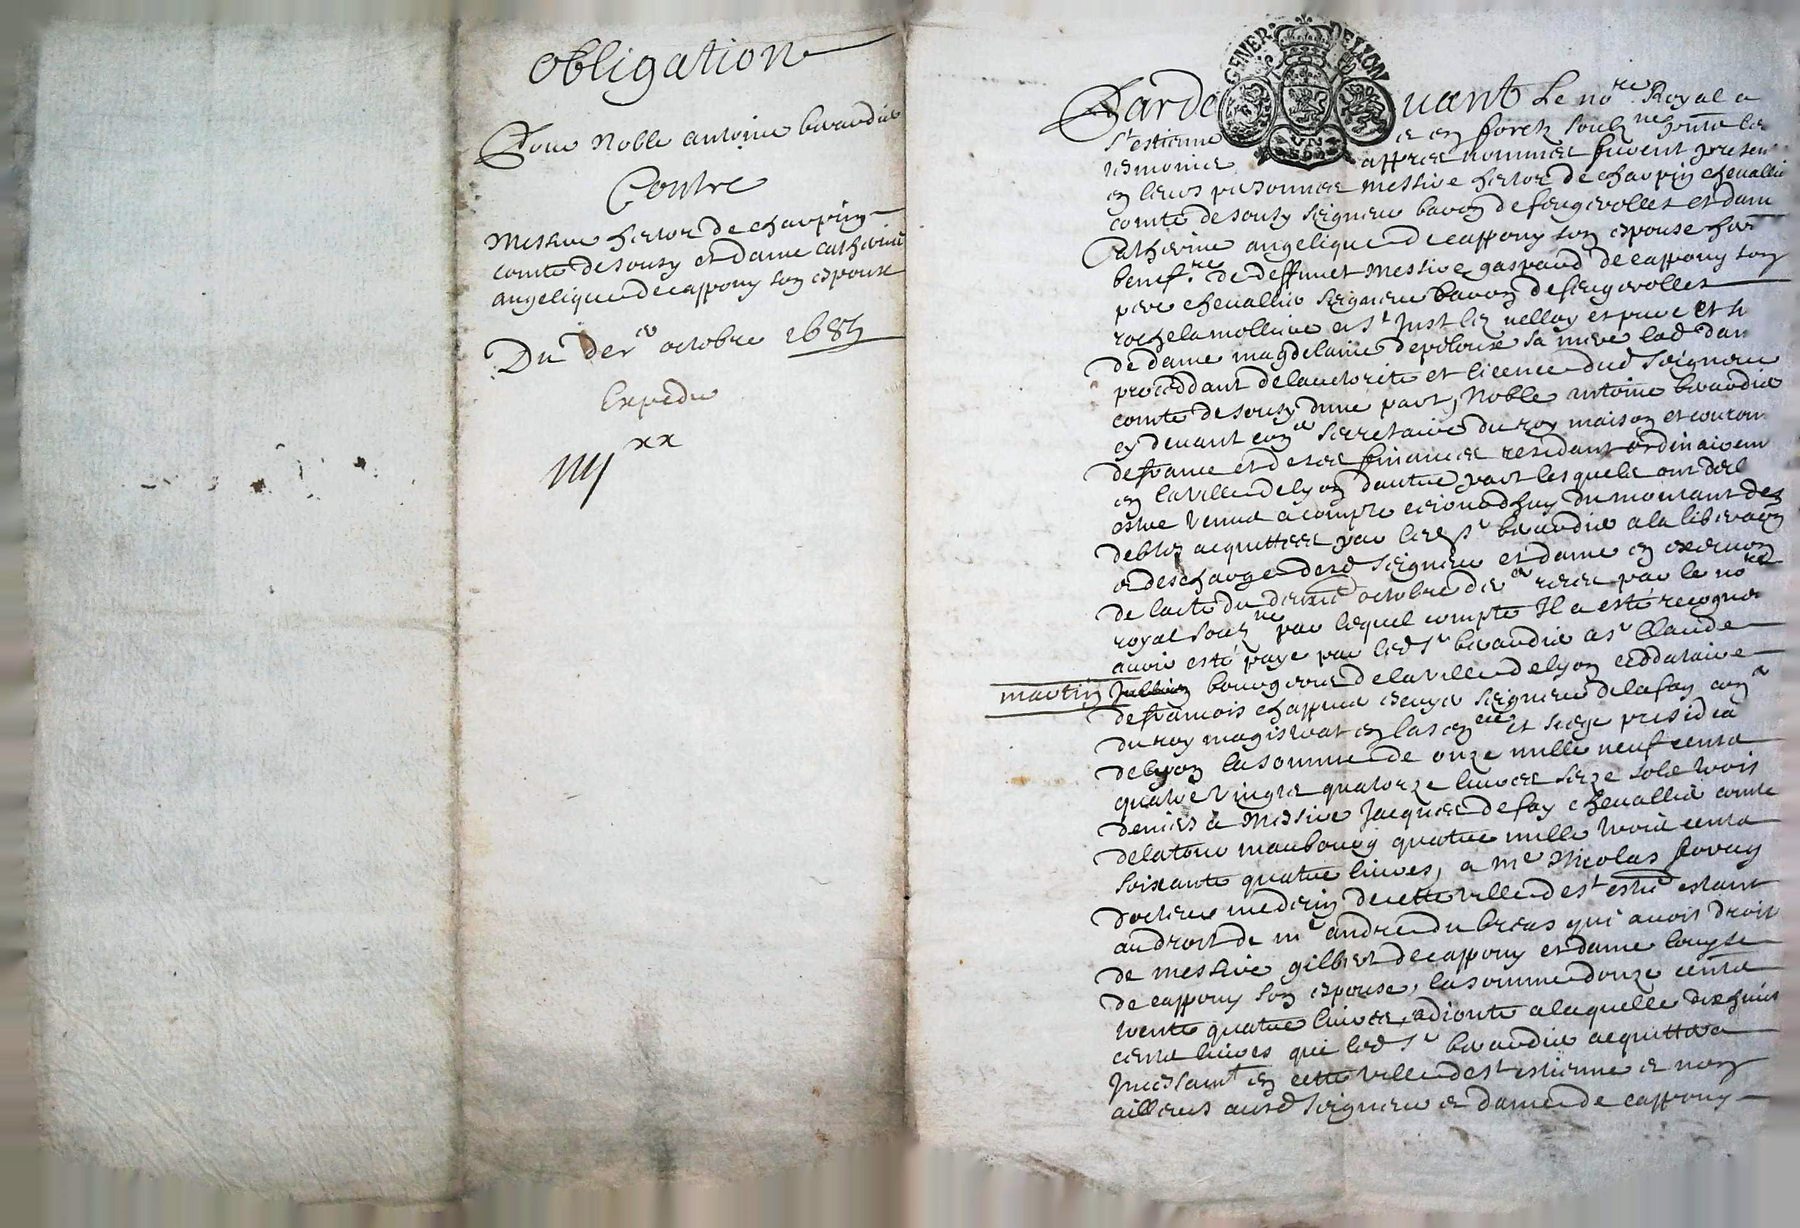 obligation
Pour Noble antoine
Contre
Messire hector de charpin
comte de souzy et dame catherine
angelique de cappony son espouse
Du der.er octobre
Expedié
iiij xx
GENER DE LYON
VN
Pardeuant Le no.re Royal a
St estienne en forest soubz.ne
tesmoins appres nommes furent presen
en leurs personnes Messire hector de charpin cheuallier
comte de souzy seigneur baron de feugerolles et dame
Catherine angelique de cappony son espouse
benef.re de deffunct Messire gaspard de cappony son
pere cheuallier seigneur baron de feugerolles
roche la molliere et St Just les vellay et
de dame magdelaine sa mere lad dam
proceddant de lauctorité et licence dud seigneur
comte de souzy dune part, Noble antoine
cy deuant con.er secretaire du roy maison et couron
de france et de ses finances residant ordinairem
en la ville de lyon dautre part lesquels ont
estre venus a compte cejourdhuy du montant des
debtes acquittées par led Sr a la liberaon
et descharge desd seigneur et dame en execuon
de lacte du dernier octobre par le no.re
royal soubz.ne par lequel compte Il a esté recogneu
auoir esté payé par led Sr a Sr Claude
martin bourgeois de la ville de lyon ceddataire
de francois chappuis escuyer seigneur de la fay con.er
du roy magistrat en la sen.cee et siege presidial
de lyon la somme de onze mille neuf cents
quatre vingts quatorze liures seize solz trois
deniers a Messire Jacques de fay cheuallier comte
de la tour maubourg quatre mille trois cents
soixante quatre liures, a Me Nicolas
docteur medecin de cette ville de St estie estant
au droit de Me andré du breas qui auoit droit
de messire gilbert de cappony et dame louyse
de cappony son espouse, la somme douze cents
trente quatre liures, adjoute a laquelle dixhuit
cents liures que led Sr acquittera
Incessam.t en cette ville de St estienne et non
ailleurs ausd seigneur et dame de cappony